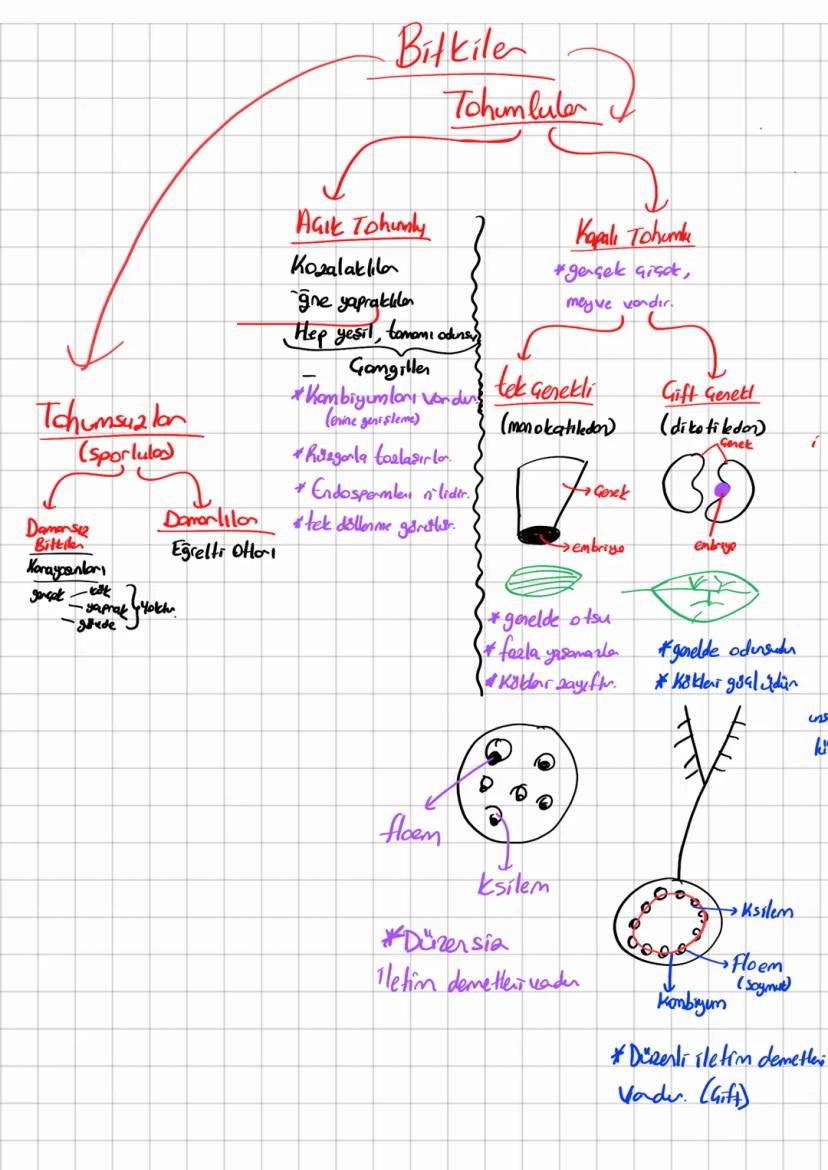 Bitkiler
Tohumlular
Açık Tohumlu
Kozalaklılar
İğne yapraklılar
Hep yeşil, tamamı odunsu
Çamgiller
*Kambiyumları vardır
(enine genişleme)
*Rüzgarla tozlaşırlar.
*Endospermleri n'lidir.
*tek döllenme görülür.
Kapalı Tohumlu
*gerçek çiçek,
meyve vardır.
tek Çenekli
(monokotiledon)
Çenek
embriyo
*genelde otsu
*fazla yaşamazlar
*Kökler zayıftır.
floem
ksilem
*Düzensiz
İletim demetleri vardır
Çift Çenekl
(dikotiledon)
Çenek
embriyo
*genelde odunsudur
*Kökleri güçlüdür
Ksilem
Floem
(soymuk)
Kanbiyum
*Düzenli iletim demetleri
Vardır. (Çift)
Tohumsuzlar
(sporlular)
Damarsız
Bitkiler
Karayosunları
gerçek
kök
yaprak
gövde
yoktur.
Damarlılar
Eğrelti Otları